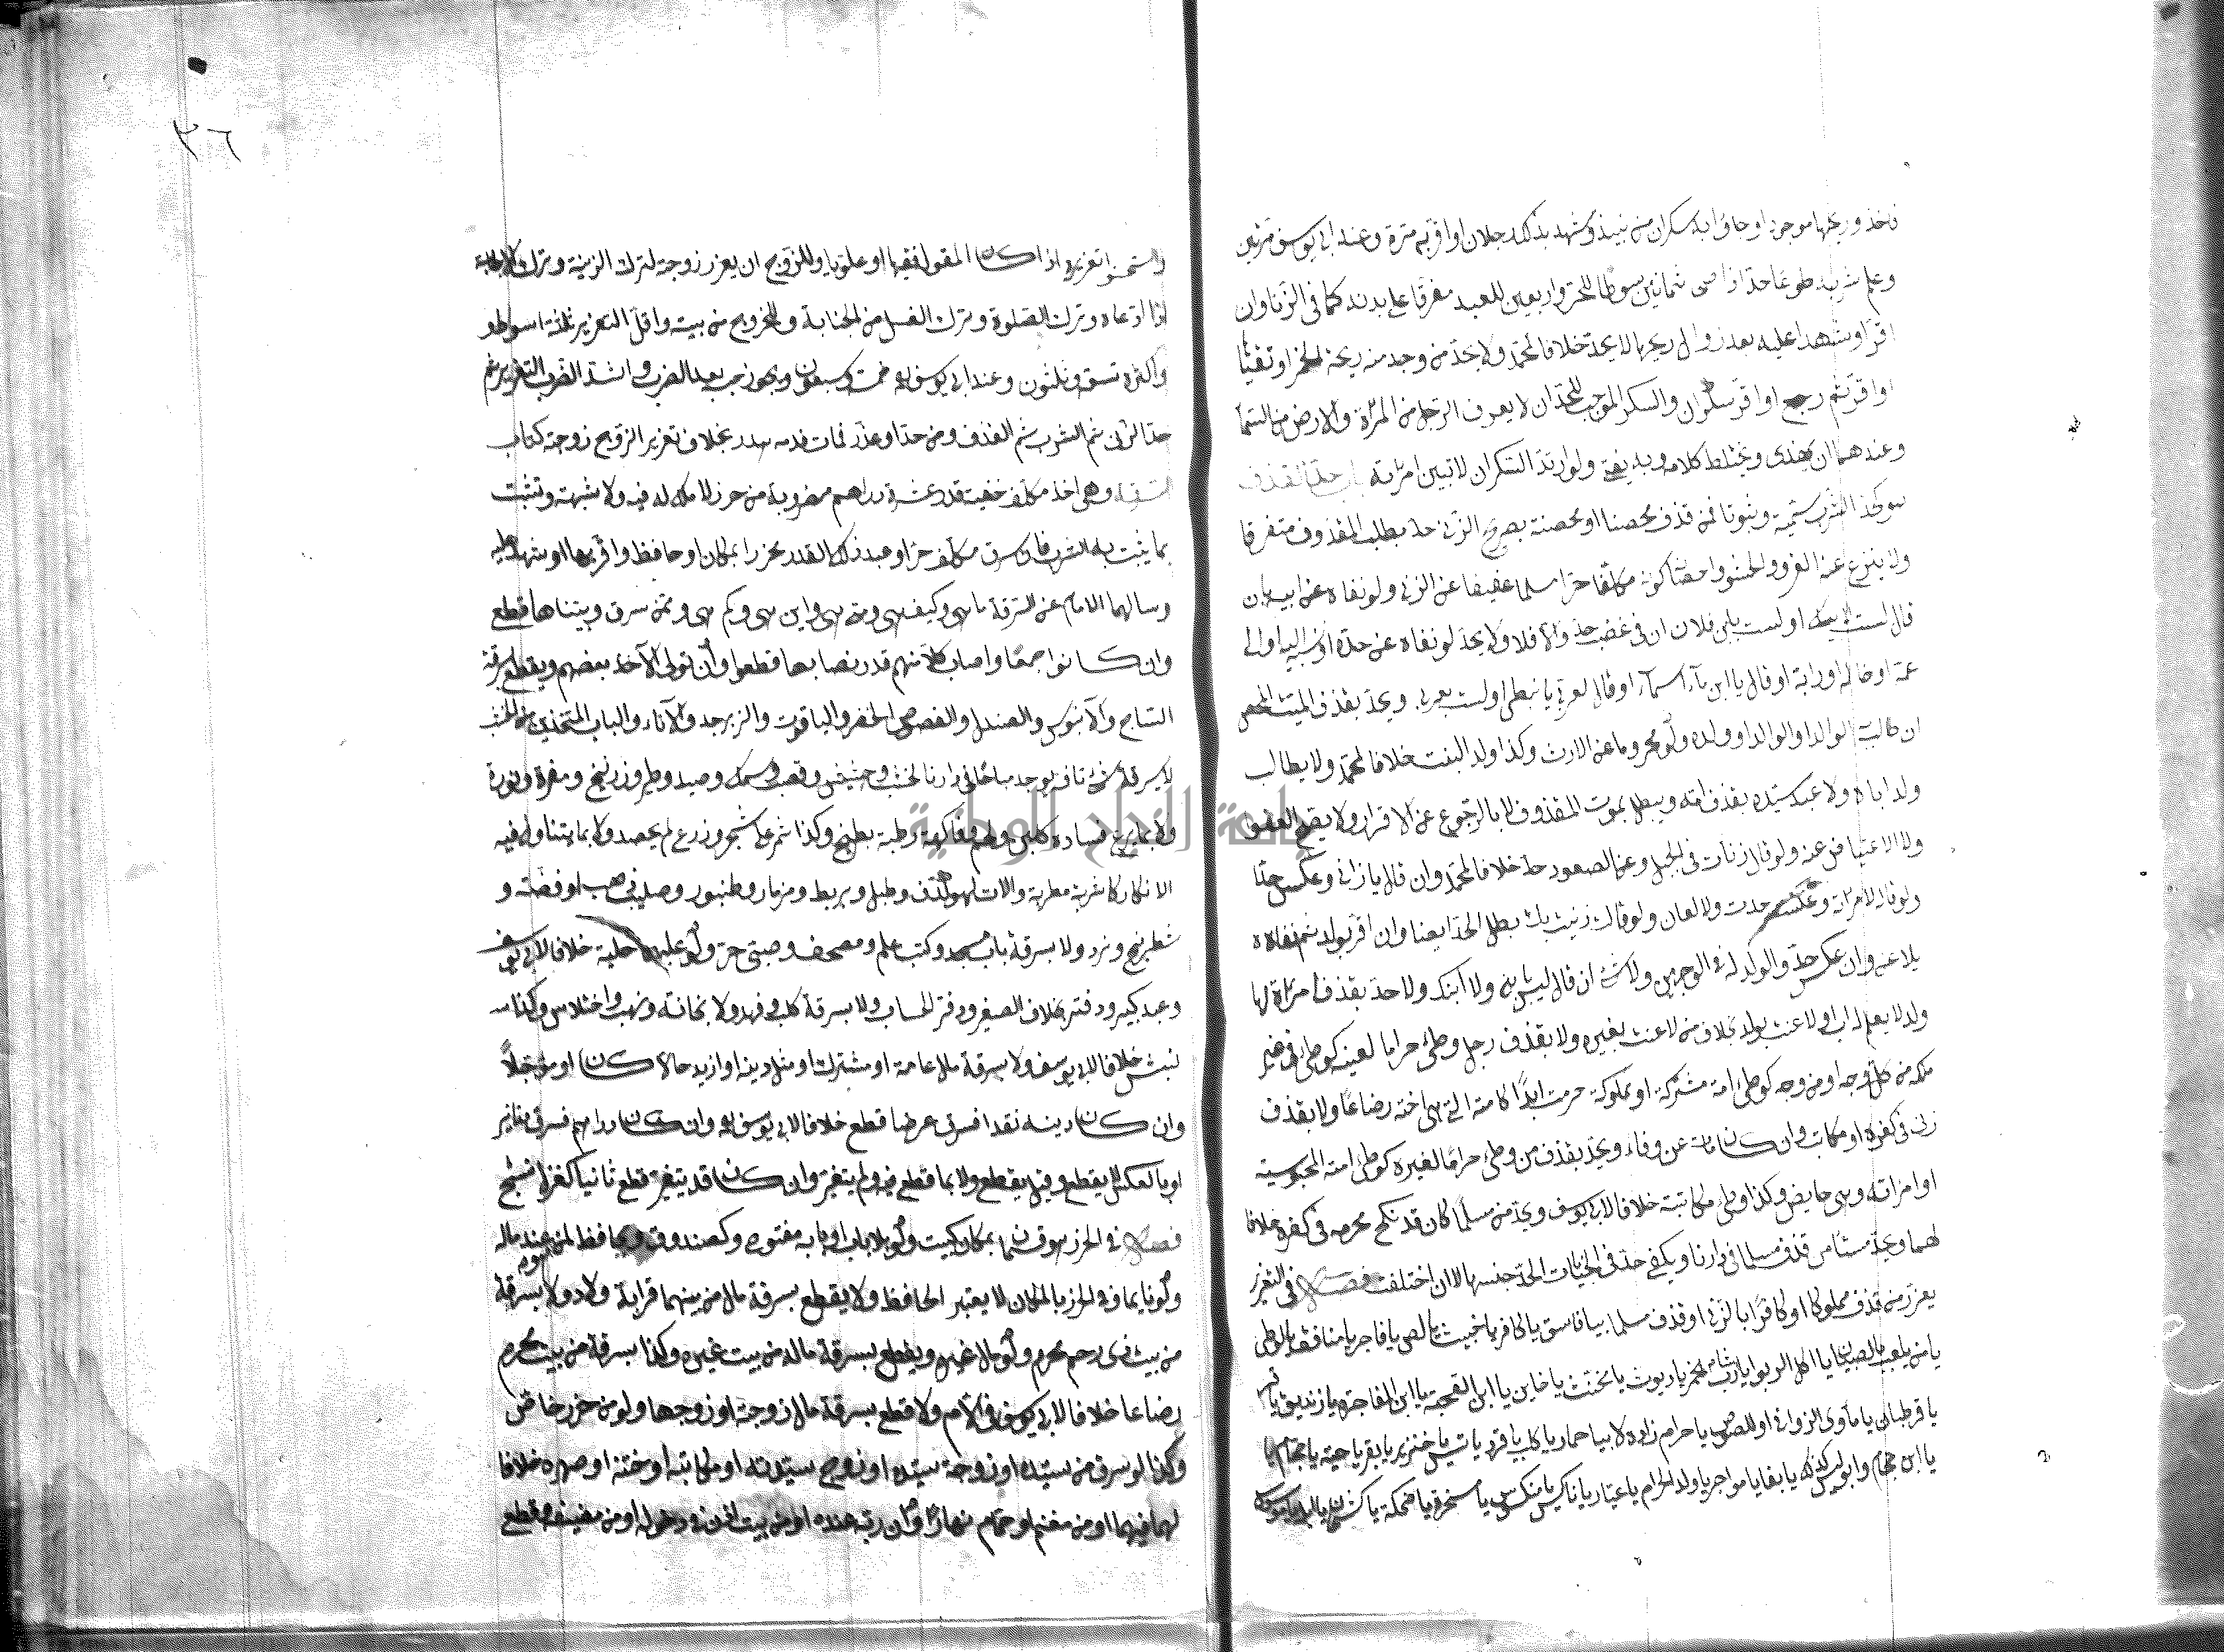 فاخذ وريحها موجود او جاؤا به سكران من نبيذ وشهد بذلك رجلان او اقر به مرة وعند ابي يوسف مرتين
وعلم شربه طوعا حد اذا صحى ثمانين سوطا للحر واربعين للعبد مفرقا على بدنه كما في الزنا وان
اقر او شهدا عليه بعد زوال ريحها لا يحد خلافا لمحمد ولا يحد من وجد منه ريحة الخمر او تقيأ
او اقر ثم رجع او اقر سكران والسكر الموجب للحد ان لا يعرف الرجل من المرأة والارض من السماء
وعندهما ان يهذى ويختلط كلامه وبه يفتى ولو ارتد السكران لا تبين امرأته باب حد القذف
هو كحد الشرب كمية وثبوتا فمن قذف محصنا او محصنة بصريح الزنى حد بطلب المقذوف متفرقا
ولا ينزع عنه الا الفرو والحشو واحصانه كونه مكلفا حرا مسلما عفيفا عن الزنى ولو نفاه عن ابيه بان
قال لست لابيك او لست بابن فلان ان في غضب حد والا فلا ولا يحد لو نفاه عن جده او نسبه اليه او الى
عمه او خاله او رابه او قال يا ابن ماء السماء او قال لعربي يا نبطي او لست بعربي ويحد بقذف الميت المحصن
ان طالب به الوالد او الوالد او ولده ولو محروما عن الارث وكذا ولد البنت خلافا لمحمد ولا يطالب
ولد اباه ولا عبد سيده بقذف امه ويبطل بموت المقذوف لا بالرجوع عن الاقرار ولا يصح العفو
ولا الاعتياض عنه ولو قال زنأت في الجبل وعنى الصعود حد خلافا لمحمد وان قال يا زاني وعكس حدا
ولو قال لامرأته وعكست حدت ولا لعان ولو قالت زنيت بك بطل الحد ايضا وان اقر بولد ثم نفاه
يلاعن وان عكس حد والولد له في الوجهين ولا شئ ان قال ليس بابني ولا ابنك ولا حد بقذف امرأة لها
ولد لا يعلم له اب او لاعنت بولد بخلاف من لاعنت بغيره ولا بقذف رجل وطئ حراما لعينه كوطئ في غير
ملكه من كل وجه او من وجه كوطئ امة مشتركة او مملوكة حرمت ابدا كامته التي هي اخته رضاعا ولا بقذف
زنى في كفره او مكاتب وان كان مات عن وفاء ويحد بقذف من وطئ حراما لغيره كوطئ امته المجوسية
او امرأته وهي حايض وكذا وطئ مكاتبته خلافا لابي يوسف ويحد من مسلما كان قد نكح محرمه في كفره خلافا
لهما ويحد مستأمن قذف مسلما في دارنا ويكفي حد في الجنايات المتحد جنسها لا ان اختلفت فصل في التعزير
يعزر من قذف مملوكا او كافرا بالزنى او قذف مسلما بيا فاسق يا كافر يا خبيث يا لص يا فاجر يا منافق يا لوطى
يا من يلعب بالصبيان يا اكل الربوا يا شارب الخمر يا ديوث يا مخنث يا خاين يا ابن القحبة يا ابن الفاجرة يا زنديق يا
يا قرطبان يا مأوى الزواني او اللصوص يا حرام زاده لا بيا حمار يا كلب يا قرد يا تيس يا خنزير يا بقر يا حية يا حجام يا
يا ابن حجام وابوه ليس كذلك يا بغا يا مواجر يا ولد الحرام يا عيار يا ناكس يا منكوس يا مسخرة يا ضحكة يا كشخان يا ابله
واستحسنوا تعزيره اذا كان المقول فقيها او علويا وللزوج ان يعزر زوجته لترك الزينة وترك الاجابة
اذا دعاه وترك الصلوة وترك الغسل من الجنابة وللخروج من بيته واقل التعزير ثلثة اسواط
واكثره تسعة وثلثون وعند ابي يوسف خمسة وسبعون ويجوز حبسه بعد الضرب واشد الضرب التعزير ثم
حد الزنى ثم الشرب ثم القذف ومن حد او عزر فمات فدمه هدر بخلاف تعزير الزوج زوجته كتاب
السرقة وهي اخذ مكلف خفية قدر عشرة دراهم مضروبة من حرز لا ملك له فيه ولا شبهة وتثبت
بما يثبت به الشرب فان سرق مكلف حر او عبد ذلك القدر محرزا بمكان او حافظ واقر بها او شهد عليه
وسألهما الامام عن السرقة ما هي وكيف هي ومتى هي واين هي وكم هي وممن سرق وبيناها قطع
وان كانوا جمعا واصاب كلا منهم قدر نصابها قطعوا وان تولى الاخذ بعضهم ويقطع بسرقة
الساج والآبنوس والصندل والفصوص الخضر والياقوت والزبرجد والاناء والباب المتخذين من الخشب
لا بسرقة شئ تافه يوجد مباحا في دارنا كخشب وحشيش وقصب وسمك وصيد وطير وزرنيخ ومغرة ونورة
ولا بما يسرع فساده كلبن ولحم وفاكهة رطبة بطيخ وكذا ثمر على شجر وزرع لم يحصد ولا بما يتناول فيه
الانكار كاشربة مطربة والات لهو كدف وطبل وبربط ومزمار وطنبور وصليب ذهب او فضة و
شطرنج ونرد ولا بسرقة باب مسجد وكتب علم ومصحف وصبي حر ولو عليهما حلية خلافا لابي يوسف
وعبد كبير ودفتر بخلاف الصغير ودفتر الحساب ولا بسرقة كلب وفهد ولا بخانة ونهب واختلاس وكذا
نبش خلافا لابي يوسف ولا بسرقة مال عامة او مشترك او مثل دينه او ازيد حالا كان او مؤجلا
وان كان دينه نقدا فسرق عرضا قطع خلافا لابي يوسف وان كان دراهم فسرق دنانير
او بالعكس لا يقطع وقيل يقطع ولا بما قطع فيه ولم يتغير وان كان قد يتغير قطع ثانيا كغزل نسج
فصل في الحرز هو قسمان بمكان كبيت ولو بلا باب او بابه مفتوح وكصندوق وبحافظ كمن عند ماله
ولو نايما وفي الحرز بالمكان لا يعتبر الحافظ ولا يقطع بسرقة مال من بينهما قرابة ولاد ولا بسرقة
من بيت ذى رحم محرم ولو مال غيره ويقطع بسرقة ماله من بيت غيره وكذا بسرقة من بيت محرم
رضاعا خلافا لابي يوسف في الام ولا قطع بسرقة مال زوجته او زوجها ولو من حرز خاص
وكذا لو سرق من سيده او زوجة سيده او زوج سيدته او مكاتبه او ختنه او صهره خلافا
لهما فيهما او من مغنم او حمام نهارا وان ربه عنده او من بيت اذن في دخوله او من مضيفه قطع
٣٦
جامعة النجاح الوطنية